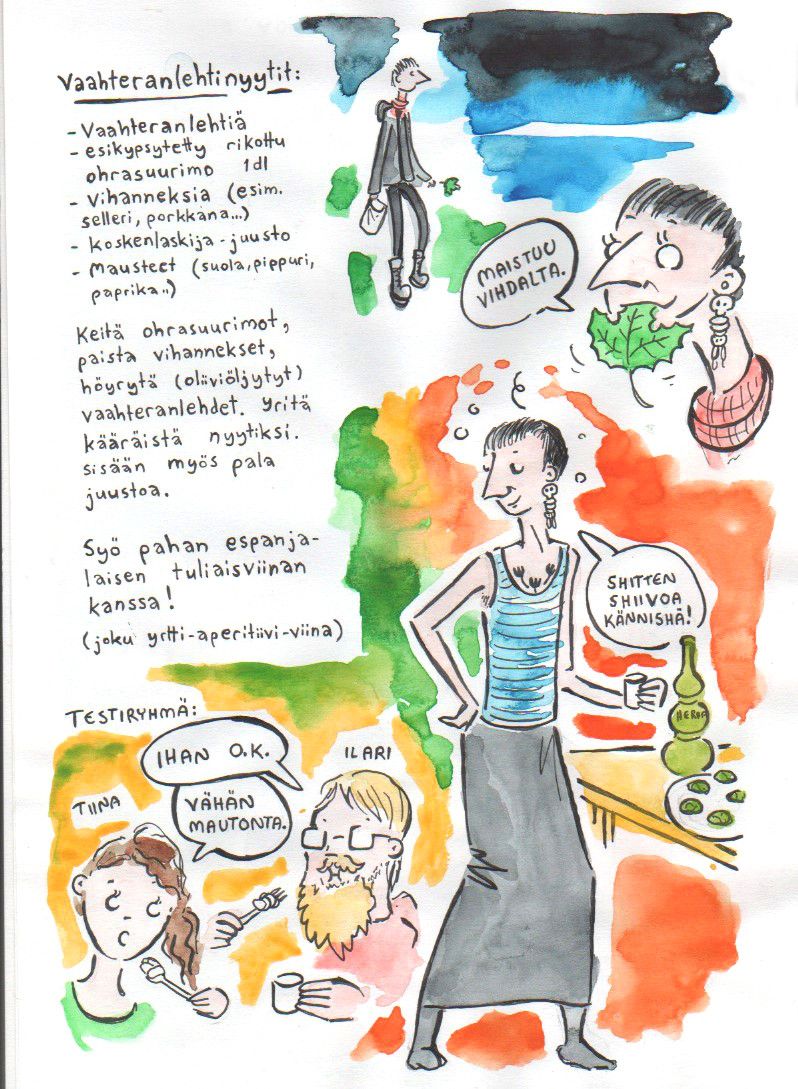 Vaahteranlehtinyytit:
- Vaahteranlehtiä
- esikypsytetty rikottu
ohrasuurimo 1dl
- vihanneksia (esim.
selleri, porkkana...)
- Koskenlaskija-juusto
- Mausteet (suola, pippuri,
paprika..)
Keitä ohrasuurimot,
paista vihannekset,
höyrytä (oliiviöljytyt)
vaahteranlehdet. Yritä
kääräistä nyytiksi.
sisään myös pala
juustoa.
Syö pahan espanja-
laisen tuliaisviinan
kanssa!
(joku yrtti-aperitiivi-viina)
MAISTUU
VIHDALTA.
SHITTEN
SHIIVOA
KÄNNISHÄ!
TESTIRYHMÄ:
IHAN O.K.
ILARI
TIINA
VÄHÄN
MAUTONTA.